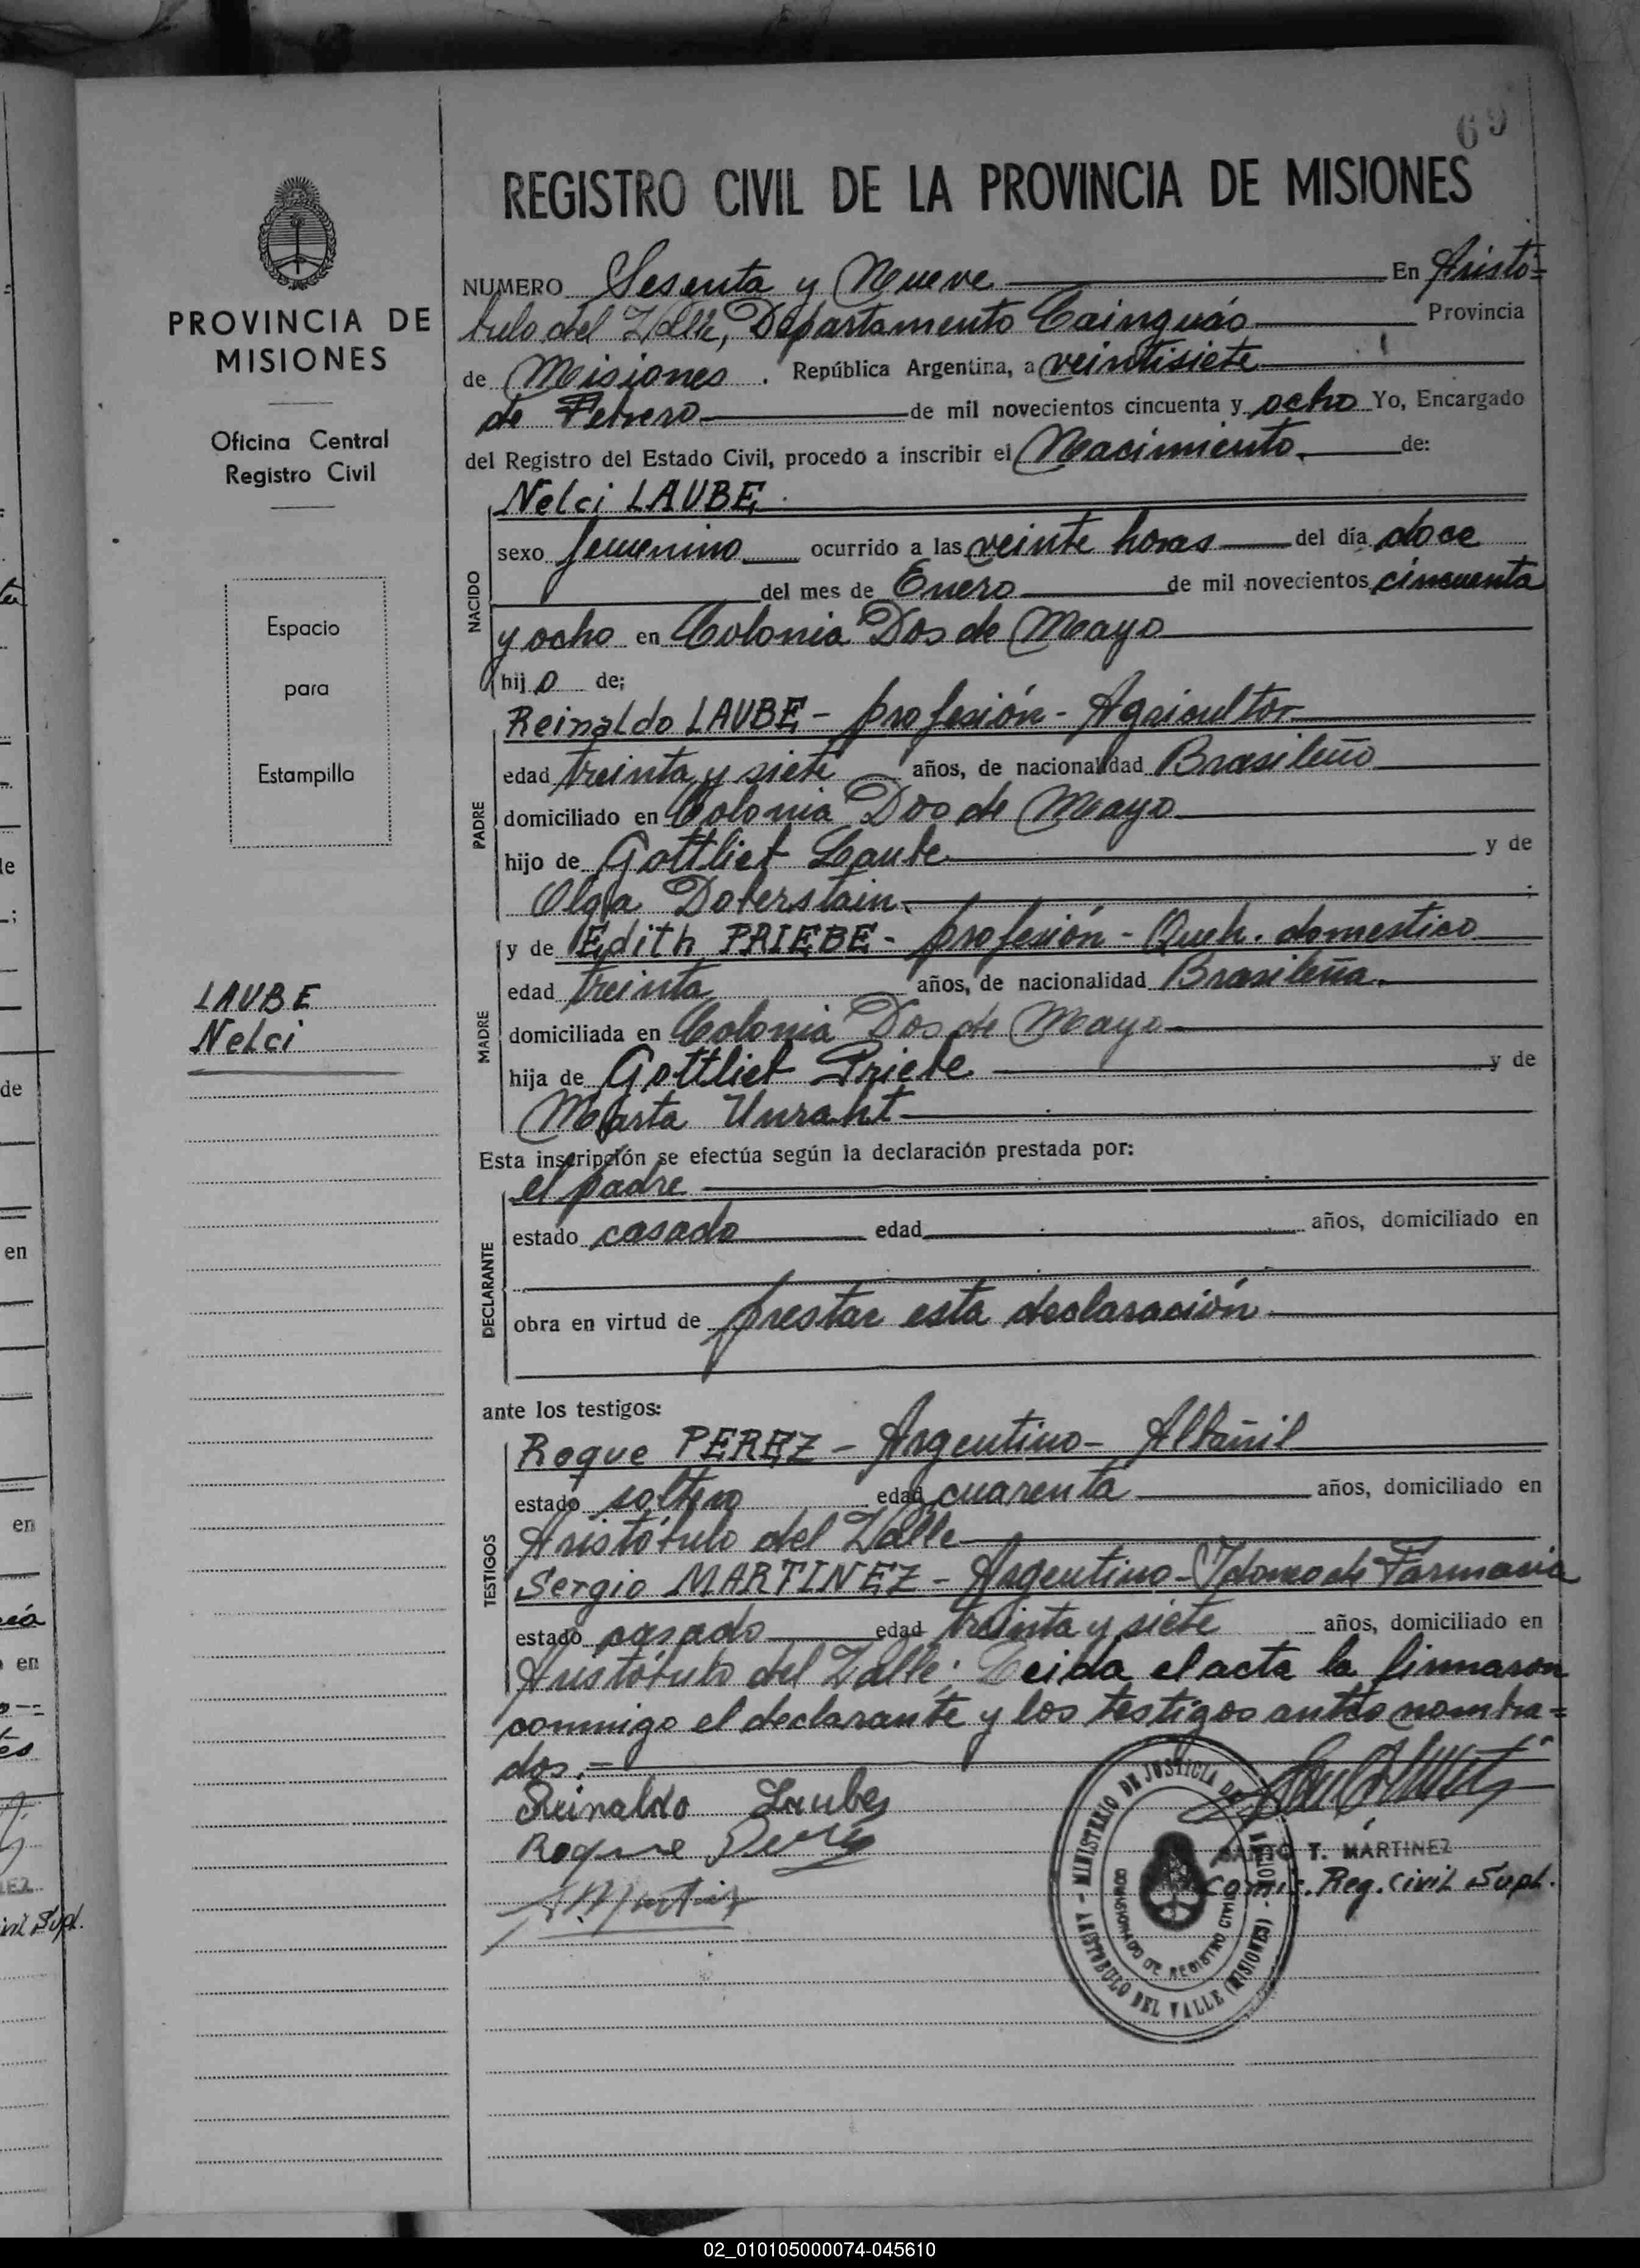 69
REGISTRO CIVIL DE LA PROVINCIA DE MISIONES
PROVINCIA DE
MISIONES
Oficina Central
Registro Civil
Espacio
para
Estampilla
LAUBE
Nelci
NUMERO Sesenta y Nueve En Aristó=
bulo del Valle, Departamento Cainguás Provincia
de Misiones. República Argentina, a veintisiete
de Febrero de mil novecientos cincuenta y ocho Yo, Encargado
del Registro del Estado Civil, procedo a inscribir el Nacimiento. de:
NACIDO
Nelci LAUBE
sexo femenino ocurrido a las veinte horas del día doce
del mes de Enero de mil novecientos cincuenta
y ocho en Colonia Dos de Mayo
hijo de;
PADRE
Reinaldo LAUBE - profesión - Agricultor
edad treinta y siete años, de nacionalidad Brasileño
domiciliado en Colonia Dos de Mayo
hijo de Gottlieb Laube y de
Olga Doberstain.
MADRE
y de Edith PRIEBE - profesión - Queh. domestico
edad treinta años, de nacionalidad Brasileña.
domiciliada en Colonia Dos de Mayo
hija de Gottlieb Priebe y de
Marta Unraht
Esta inscripción se efectúa según la declaración prestada por:
DECLARANTE
el padre
estado casado edad años, domiciliado en
obra en virtud de prestar esta declaración
ante los testigos:
TESTIGOS
Roque PEREZ - Argentino - Albañil
estado soltero edad cuarenta años, domiciliado en
Aristóbulo del Valle
Sergio MARTINEZ - Argentino - Idoneo de Farmacia
estado casado edad treinta y siete años, domiciliado en
Aristóbulo del Valle. Leida el acta la firmaron
conmigo el declarante y los testigos antes nombra=
dos.-
Reinaldo Laube
Roque Perez
T. MARTINEZ
Comis. Reg. Civil Supl.
MINISTERIO DE JUSTICIA DE LA NACION - ARISTOBULO DEL VALLE (MISIONES)
COMISIONADO DE REGISTRO CIVIL
02_010105000074-045610